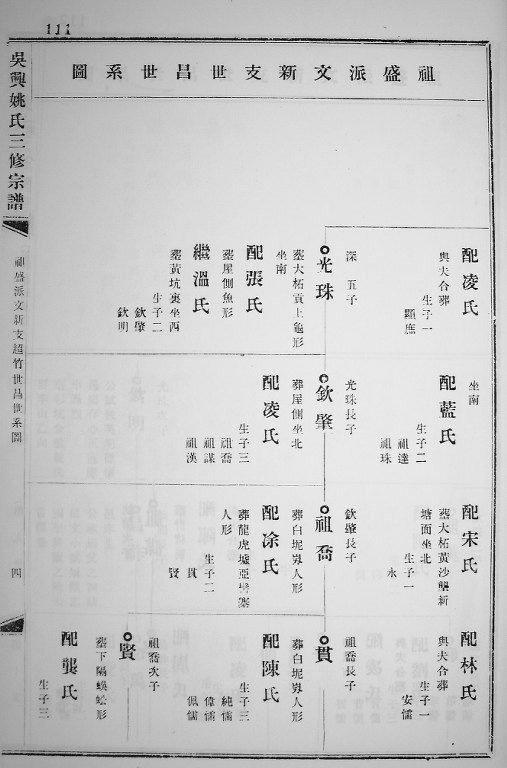 111
祖盛派文新支世昌世系圖
吳興姚氏三修宗譜
祖盛派文新支超竹世昌世系圖
四
配凌氏
與夫合葬
生子一
顯庶
深 五子
光珠
塟大柘貢上龜形
坐南
配張氏
塟屋側魚形
繼溫氏
塟黃坑裏坐西
生子二
欽肇
欽明
坐南
配藍氏
生子二
祖達
祖珠
光珠長子
欽肇
葬屋側坐北
配凌氏
生子三
祖喬
祖謀
祖漢
配宋氏
塟大柘黃沙壟新
塘面坐北
生子一
永
欽肇長子
祖喬
葬白坭崀人形
配凃氏
葬龍虎墟亞
人形
生子二
貫
賢
配林氏
與夫合葬
生子一
安儒
祖喬長子
貫
葬白坭崀人形
配陳氏
生子三
純儒
偉儒
佩儒
祖喬次子
賢
塟下隔蜈蚣形
配龔氏
生子三